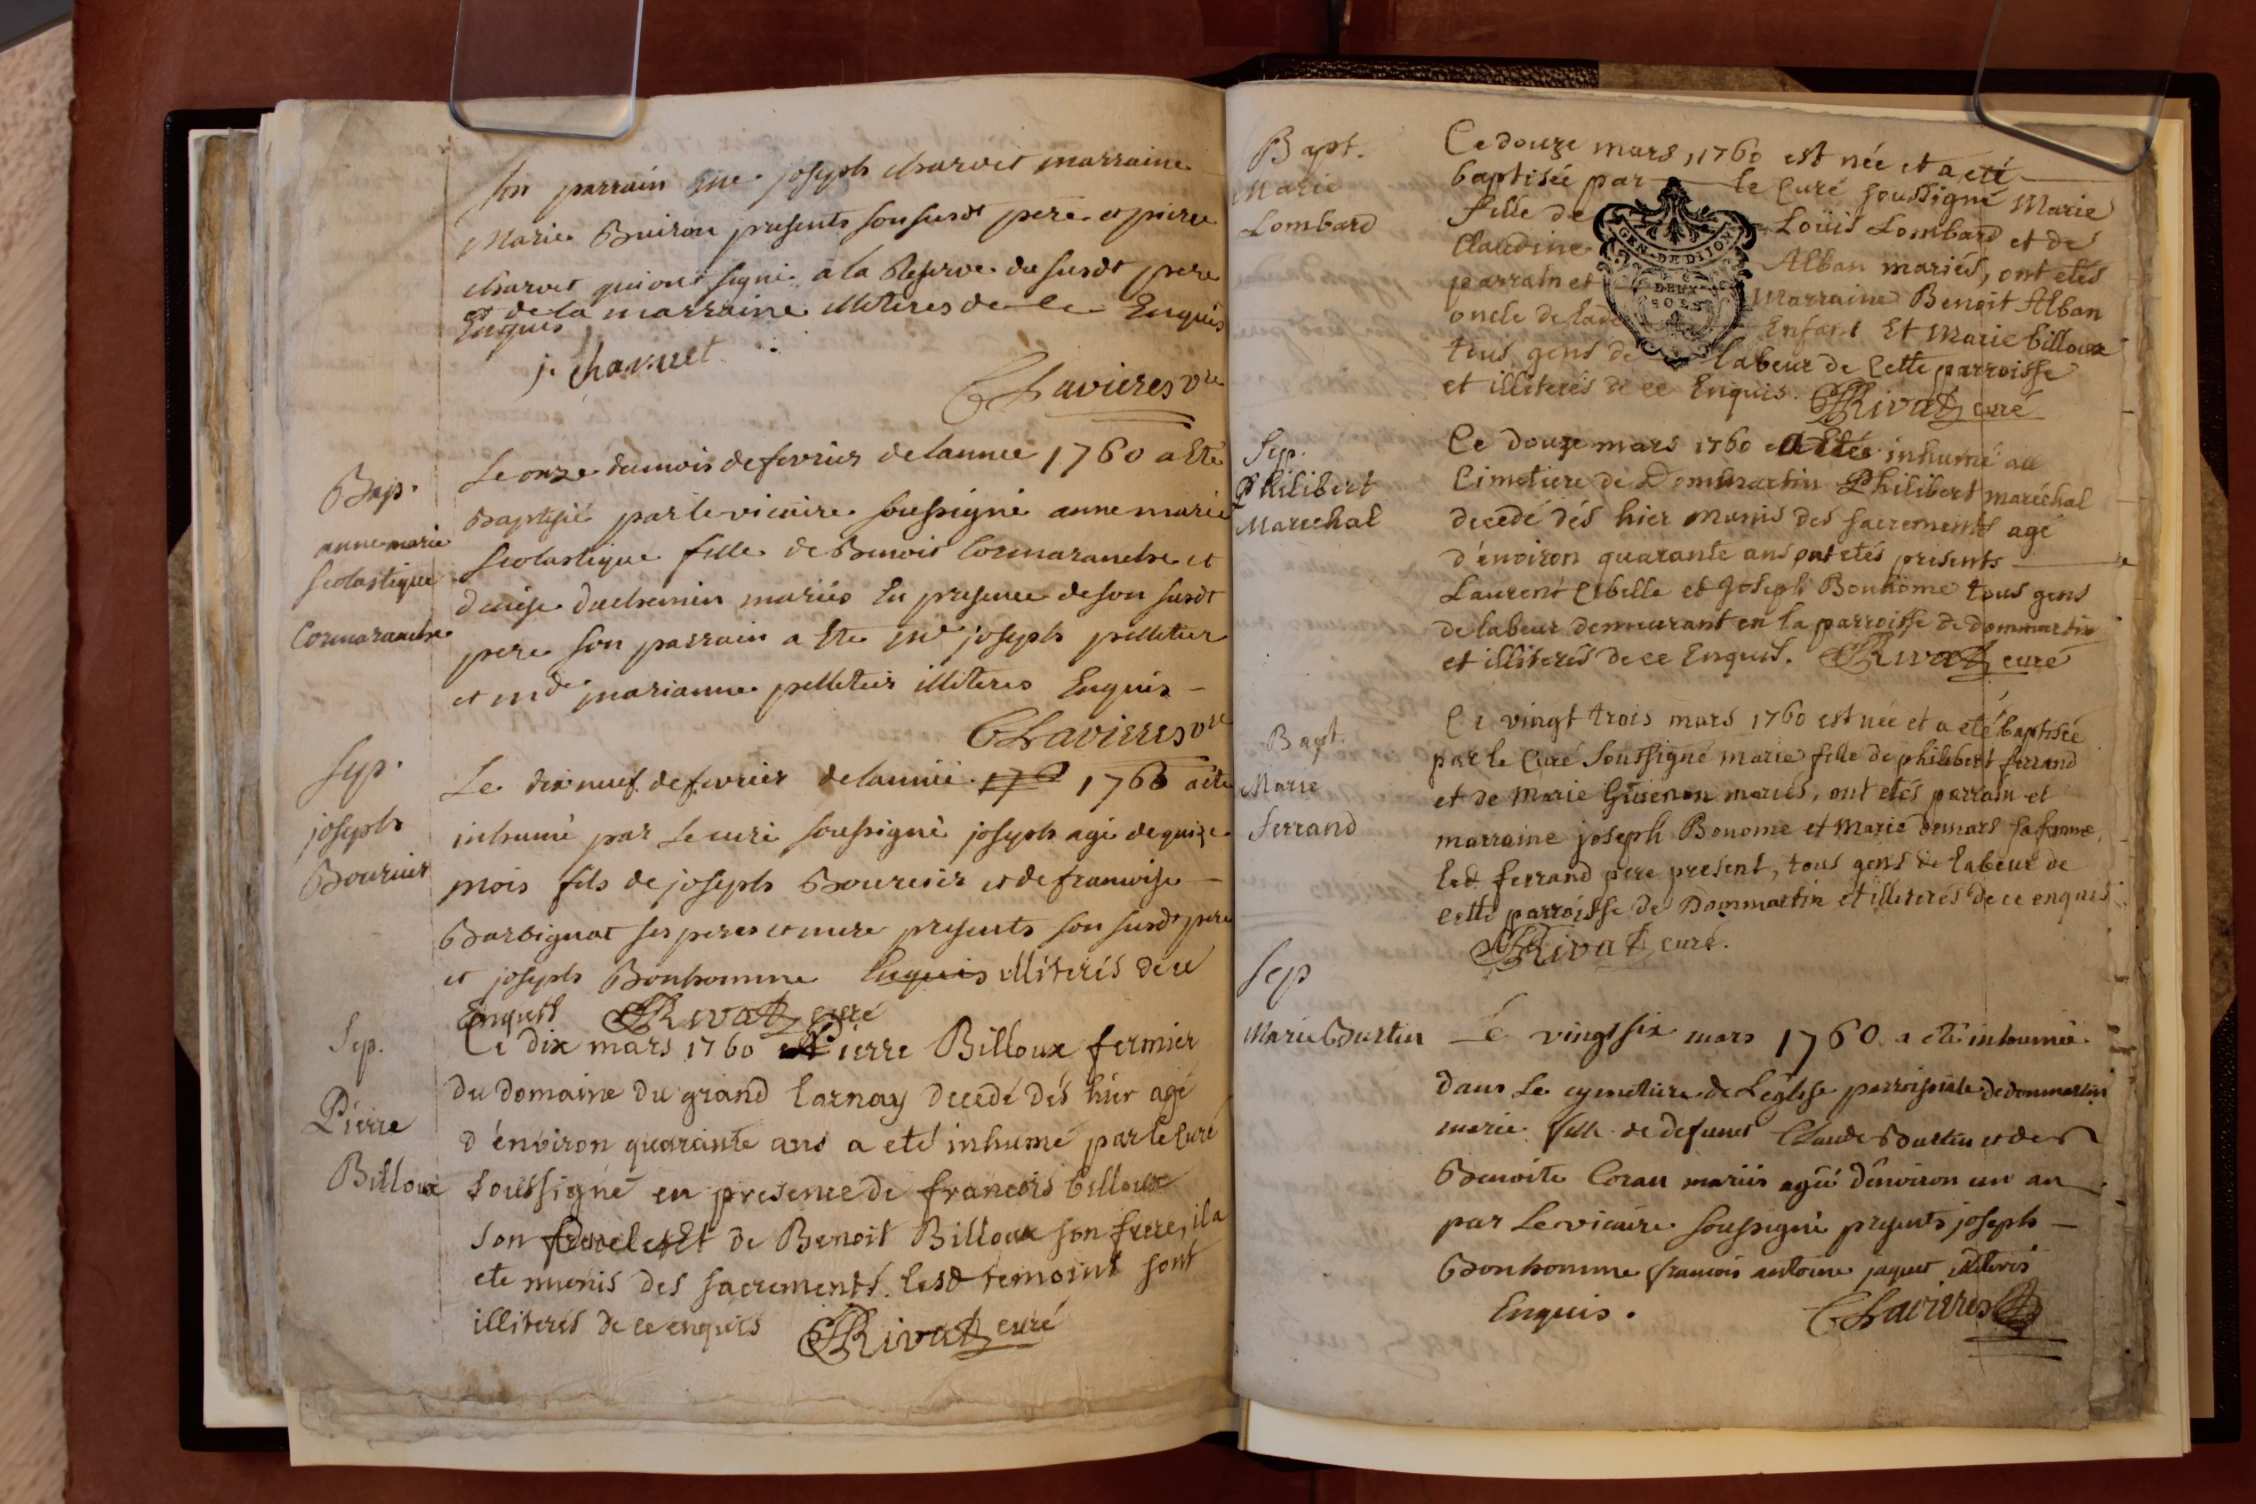 son parrain sieur joseph charvet marraine
Marie Buiron presents son susdt pere et pierre
charvet qui ont signé à la Reserve du susdt pere
et de la marraine illiteres de ce Enquis
Enquis
j. Charvet
Chavieres vre
Bap.
anne marie
scolastique
Cormaranche
Le onze du mois de fevrier de lannee 1760 a Ete
Baptisée par le vicaire soussigné anne marie
scolastique fille de Benoit Cormaranche et
denise duchemin mariés En presence de son susdt
pere son parrain a Ete joseph pelletier
et mde marianne pelletier illiteres Enquis
Chavieres vre
Sep.
joseph
Bourcier
Le dix neuf de fevrier de lannée 176 1760 a été
inhumé par le curé soussigné joseph agé de quinze
mois fils de joseph Bourcier et de francoise
Barbignat ses peres et mere presents son susdt pere
et joseph Bonhomme Enquis illiterés de ce
Enquis Rivat curé
Sep.
Pierre
Billoux
Ce dix mars 1760 Pierre Billoux fermier
du domaine du grand Carnay decedé dés hier agé
d'environ quarante ans a eté inhumé par le Curé
soussigné en presence de francois billoux
son et de Benoit Billoux son frere, il a
ete munis des sacrements. lesd temoins sont
illiterés de ce enquis Rivat curé
Bapt.
Marie
Lombard
Ce douze mars 1760 est née et a eté
baptisée par le Curé soussigné Marie
fille de Loüis Lombard et de
Claudine Alban mariés, ont etés
parrain et Marraine Benoit Alban
oncle de lad Enfant Et Marie billoux
tous gens de labeur de Cette parroisse
et illiterés de ce Enquis. Rivat curé
GEN. DE DIJON
DEUX
SOLS
Sep.
Philibert
Marechal
Ce douze mars 1760 a Etée inhumé au
Cimetiere de Dommartin Philibert maréchal
decedé dés hier Munis des sacrements agé
d'environ quarante ans ont etés presents
Laurent Cibelle et Joseph Bonhome tous gens
de labeur demeurant en la parroisse de dommartin
et illiterés de ce Enquis. Rivat curé
Bapt.
Marie
Ferrand
Ce vingt trois mars 1760 est née et a eté baptisée
par le Curé Soussigné marie fille de philibert ferrand
et de marie Guienon mariés, ont etés parrain et
marraine joseph Bonome et Marie demars sa femme,
led. ferrand pere present, tous gens de labeur de
cette parroisse de Dommartin et illiterés de ce enquis
Rivat curé.
Sep
Marie Burtin
Le vingt six mars 1760 a eté inhumée
dans Le cymetiere de Leglise parroissiale de dommartin
marie fille de defunct Claude Burtin et de
Benoite Coran mariés agée d'environ un an
par Le vicaire soussigné presents joseph
Bonhomme francois antoine jaquet illiterés
Enquis. Chavieres